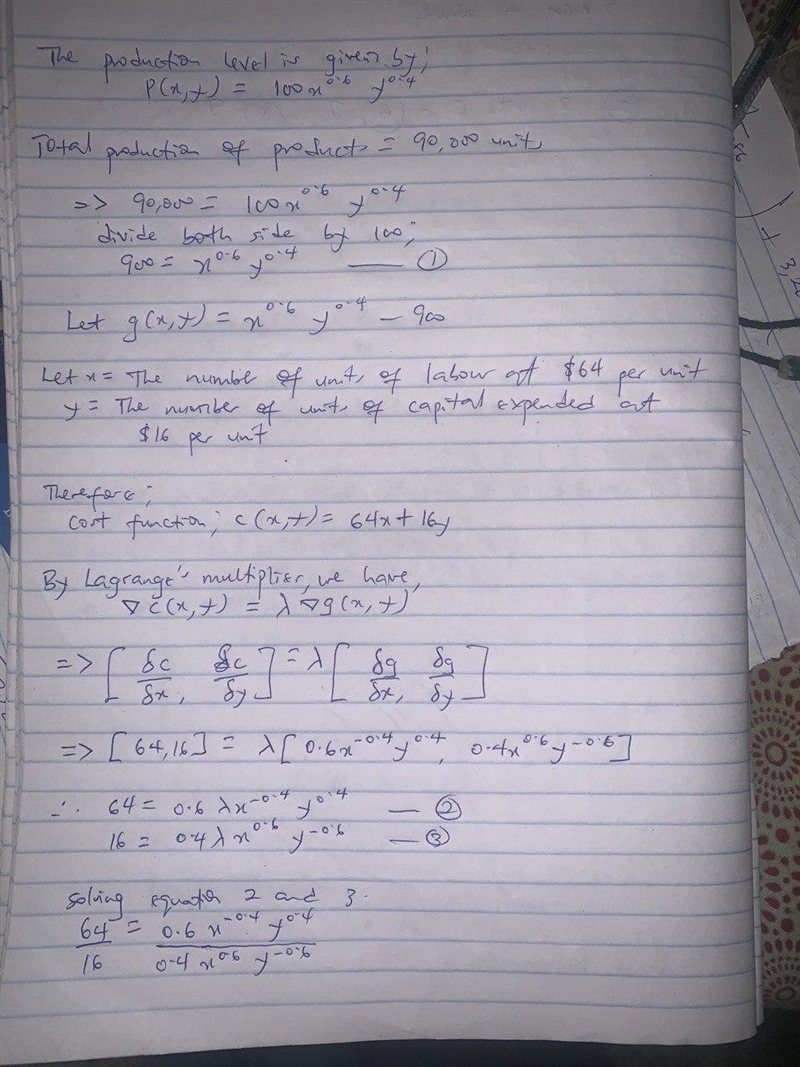 The production level is given by;
P(x,y) = 100x^0.6 y^0.4
Total production of products = 90,000 units
=> 90,000 = 100x^0.6 y^0.4
divide both side by 100;
900 = x^0.6 y^0.4 —— ①
Let g(x,y) = x^0.6 y^0.4 - 900
Let x = The number of units of labour at $64 per unit
y = The number of units of capital expended at
$16 per unit
Therefore;
Cost function; c(x,y) = 64x + 16y
By Lagrange's multiplier, we have,
∇c(x,y) = λ∇g(x,y)
=> [δc/δx, δc/δy] = λ[δg/δx, δg/δy]
=> [64,16] = λ[0.6x^-0.4 y^0.4, 0.4x^0.6 y^-0.6]
∴ 64 = 0.6λx^-0.4 y^0.4 —— ②
16 = 0.4λx^0.6 y^-0.6 —— ③
Solving equation 2 and 3.
64/16 = 0.6 x^-0.4 y^0.4 / 0.4 x^0.6 y^-0.6